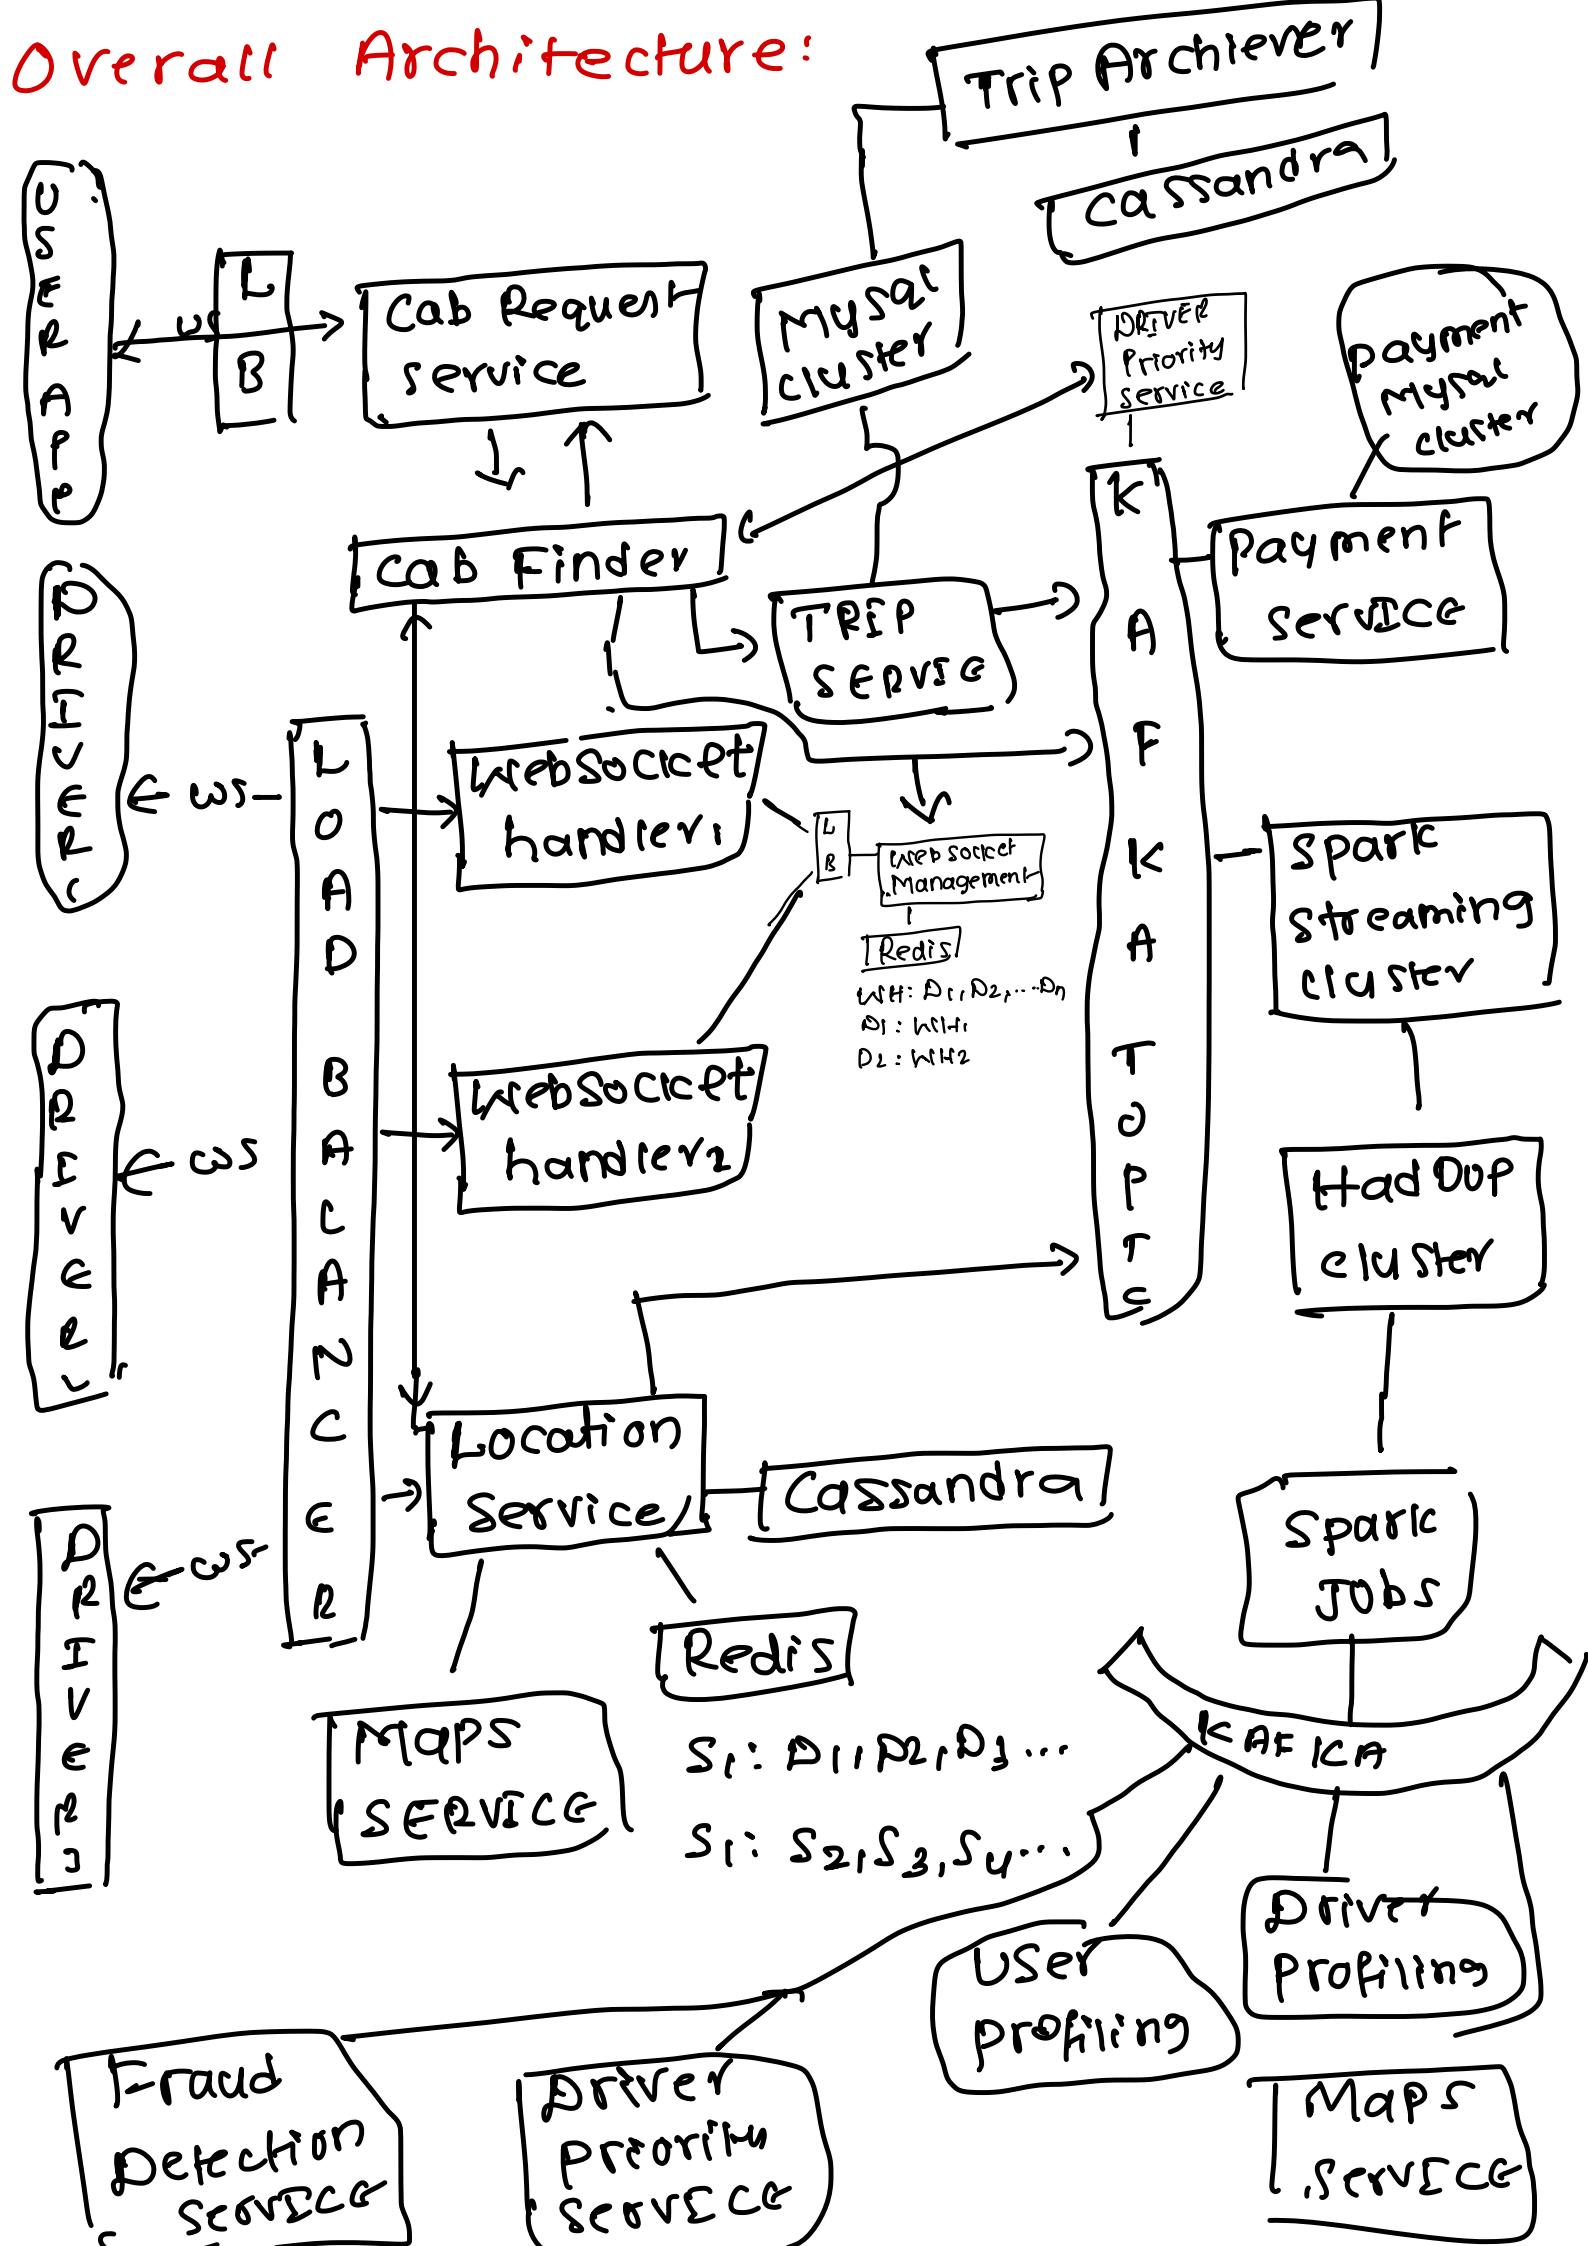 Overall Architecture:
Trip Archiever
Cassandra
USER APP
WS
LB
Cab Request
service
Mysql
cluster
DRIVER
Priority
service
payment
Mysql
cluster
Cab Finder
TRIP
SERVICE
KAFKA TOPIC
Payment
SERVICE
DRIVER
WS
LOAD BALANCER
WebSocket
handler1
LB
WebSocket
Management
Redis
WH: D1, D2, ... Dn
D1: WH1
D2: WH2
Spark
streaming
cluster
DRIVER
WS
WebSocket
handler2
Hadoop
cluster
Location
Service
Cassandra
DRIVER
WS
Spark
JOBS
Redis
Maps
SERVICE
S1: D1, D2, D3 ...
S1: S2, S3, S4 ...
KAFKA
User
profiling
Driver
Profiling
Fraud
Detection
Service
Driver
Priority
Service
Maps
Service